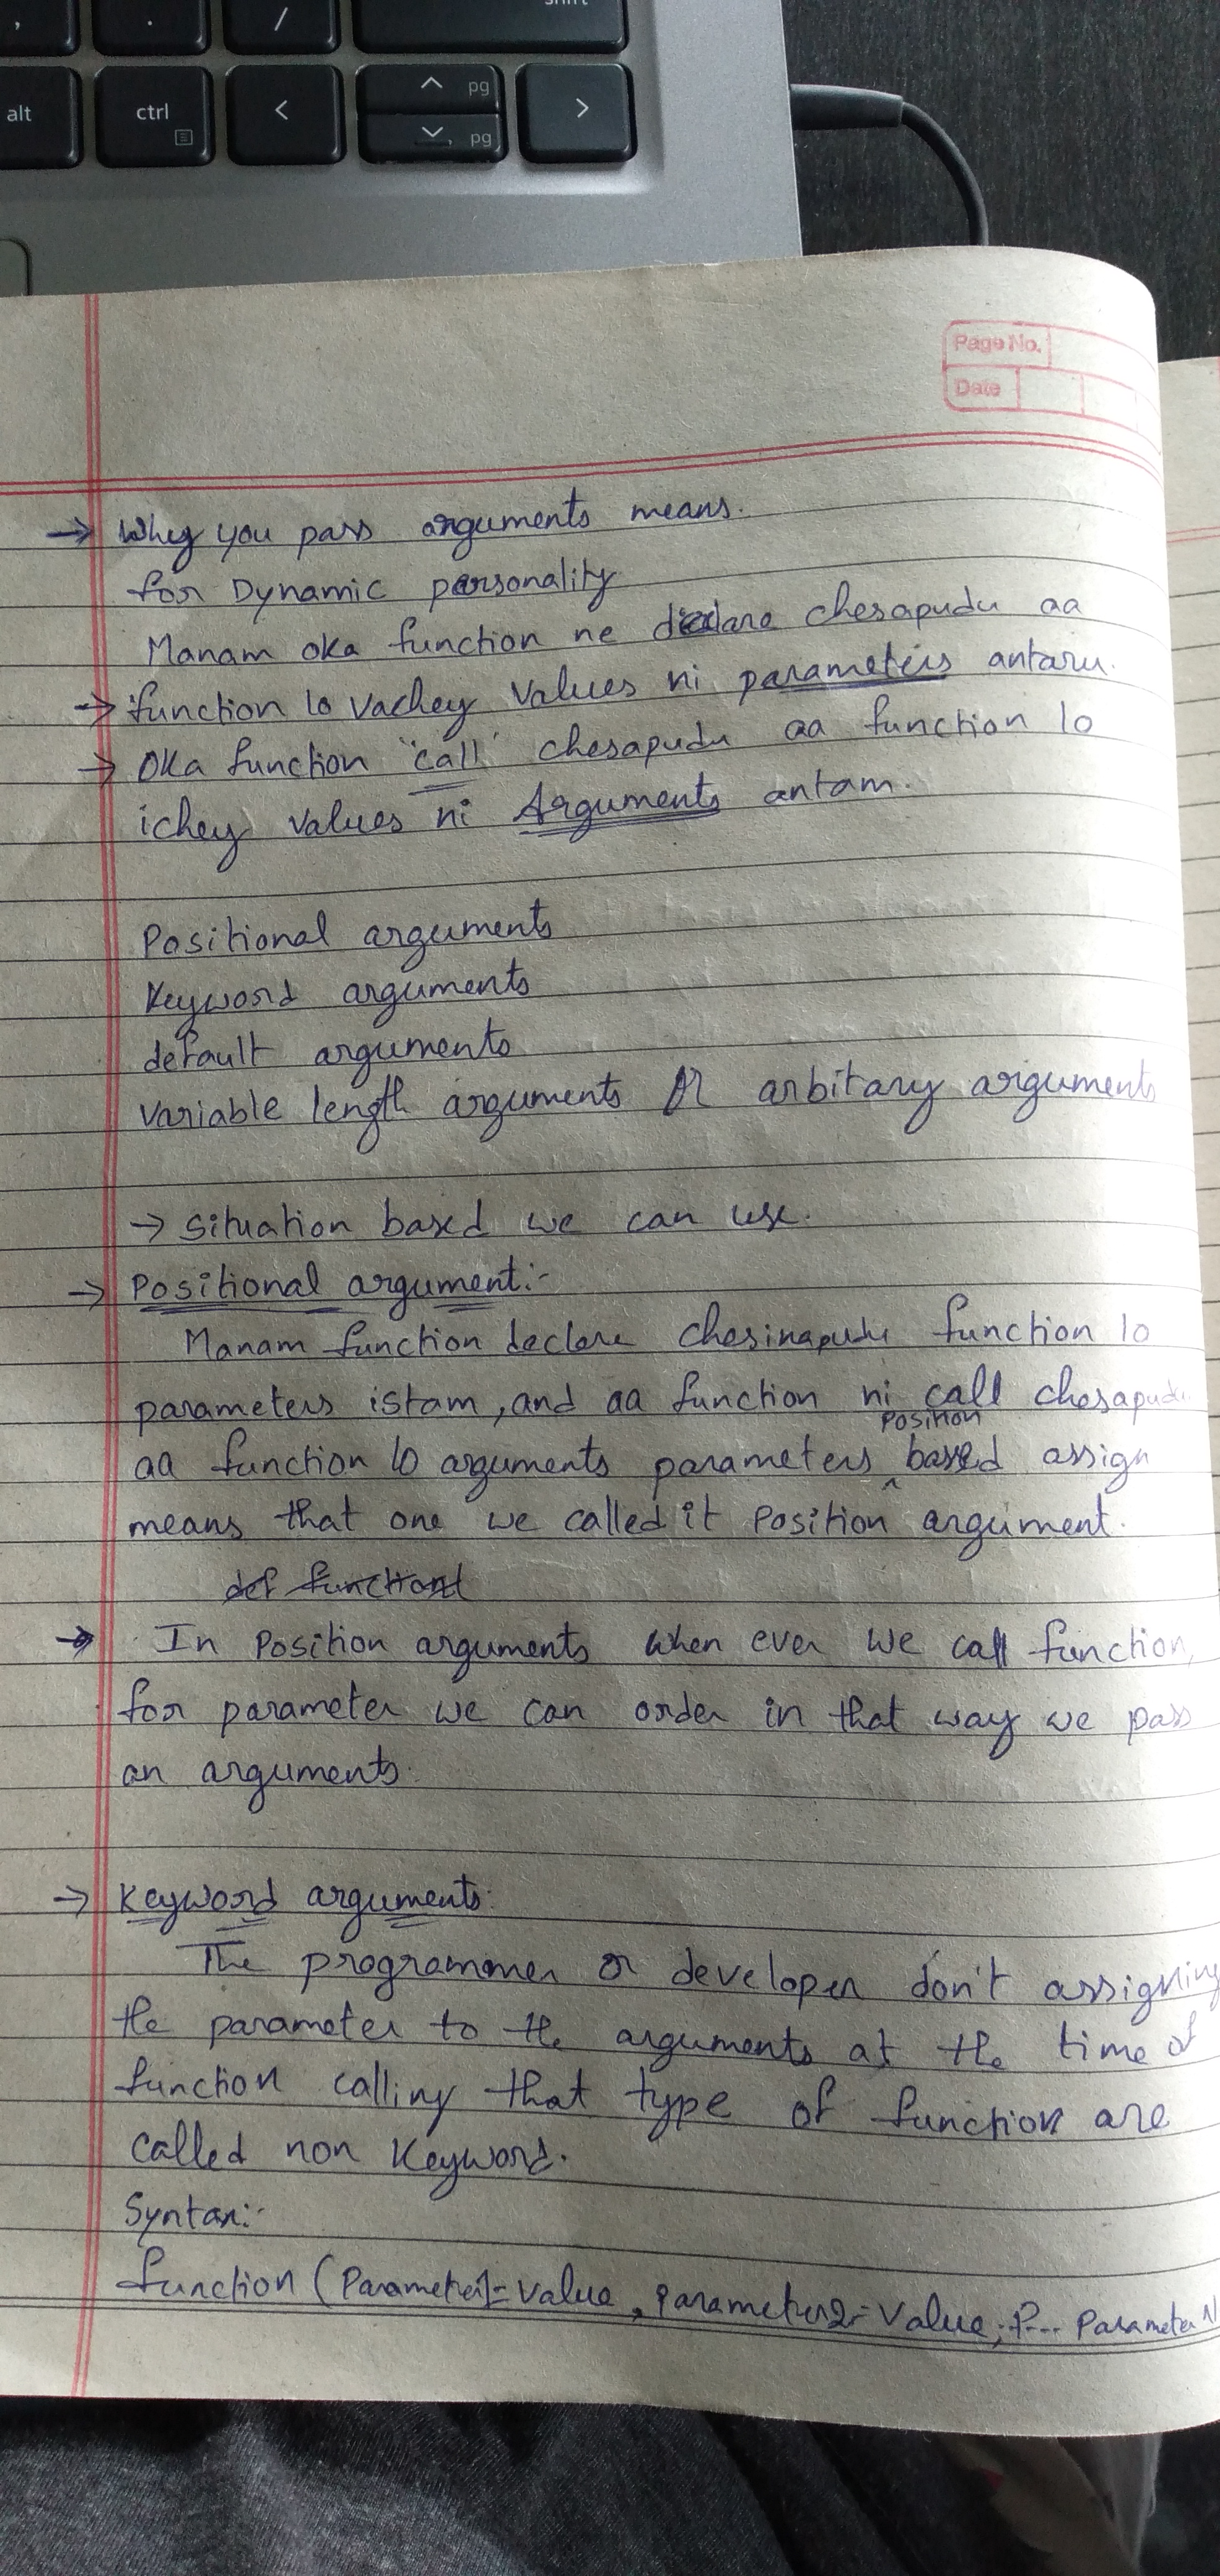 shift
,
.
/
alt
ctrl
<
^ pg
pg
>
Page No.
Date
→ Why you pass arguments means.
for Dynamic personality
Manam oka function ne declare chesapudu aa
→ function lo vachey values ni parameters antaru.
→ Oka function "call" chesapudu aa function lo
ichey values ni Arguments antam.
Positional arguments
Keyword arguments
default arguments
variable length arguments or arbitary arguments
→ Situation based we can use.
→ Positional argument:-
Manam function declare chesinapudu function lo
parameters istam, and aa function ni call chesapudu
position
aa function lo arguments parameters ^ based assign
means that one we called it Position argument.
def function1
→ In Position arguments when ever we call function,
for parameter we can order in that way we pass
an arguments.
→ Keyword arguments:
The programmer or developer don't assigning
the parameter to the arguments at the time of
function calling that type of function are
called non Keyword.
Syntax:-
function (Parameter1=Value, Parameter2=Value, P... Parameter N